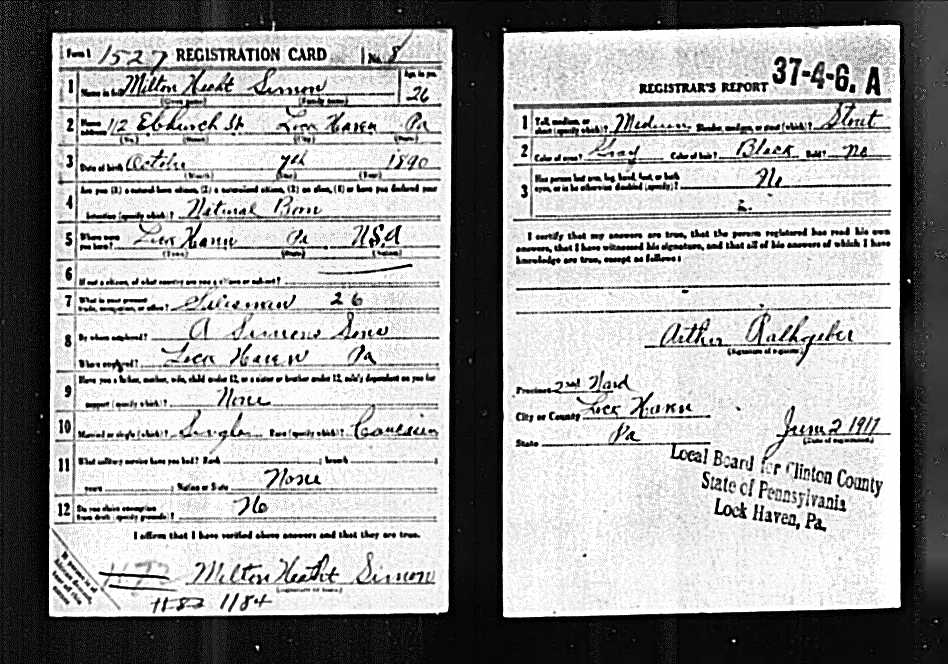 Form 1 1527 REGISTRATION CARD No. 8
1 Name in full Milton Hecht Simon Age, in yrs. 26
(Given name) (Family name)
2 Home address 112 E Church St. Lock Haven Pa
(No.) (Street) (City) (State)
3 Date of birth October 7th 1890
(Month) (Day) (Year)
Are you (1) a natural born citizen, (2) a naturalized citizen, (3) an alien, (4) or have you declared your
4 intention (specify which)? Natural Born
5 Where were you born? Lock Haven Pa U.S.A
(Town) (State) (Nation)
6 If not a citizen, of what country are you a citizen or subject?
7 What is your present trade, occupation, or office? Salesman 26
8 By whom employed? A Simons Sons
Where employed? Lock Haven Pa
9 Have you a father, mother, wife, child under 12, or a sister or brother under 12, solely dependent on you for
support (specify which)? None
10 Married or single (which)? Single Race (specify which)? Caucasian
11 What military service have you had? Rank ; branch
years ; Nation or State None
12 Do you claim exemption from draft (specify grounds)? No
I affirm that I have verified above answers and that they are true.
Milton Hecht Simon
(Signature or mark)
1183 1184
37-4-6. A
REGISTRAR'S REPORT
1 Tall, medium, or short (specify which)? Medium Slender, medium, or stout (which)? Stout
2 Color of eyes? Gray Color of hair? Black Bald? No
3 Has person lost arm, leg, hand, foot, or both eyes, or is he otherwise disabled (specify)? No
I certify that my answers are true, that the person registered has read his own
answers, that I have witnessed his signature, and that all of his answers of which I have
knowledge are true, except as follows:
Arthur Rathgeber
(Signature of registrar)
Precinct 2nd Ward
City or County Lock Haven
State Pa
June 2 1917
(Date of registration)
Local Board for Clinton County
State of Pennsylvania
Lock Haven, Pa.